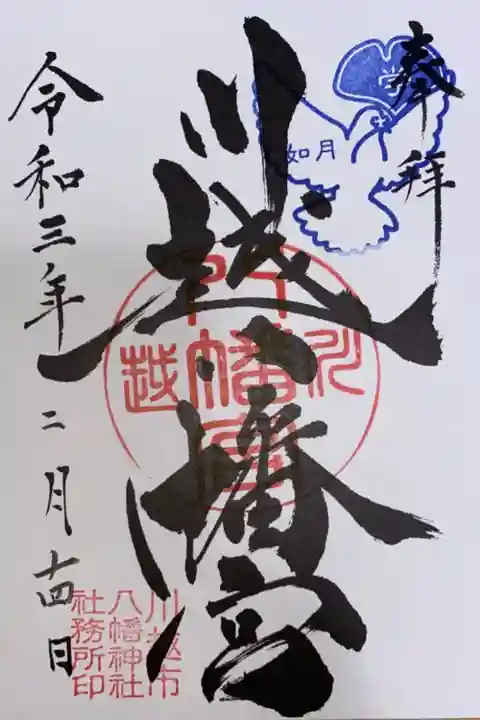 奉拝
如月
川越八幡宮
川越
八幡宮
令和三年二月十四日
川越市
八幡神社
社務所印